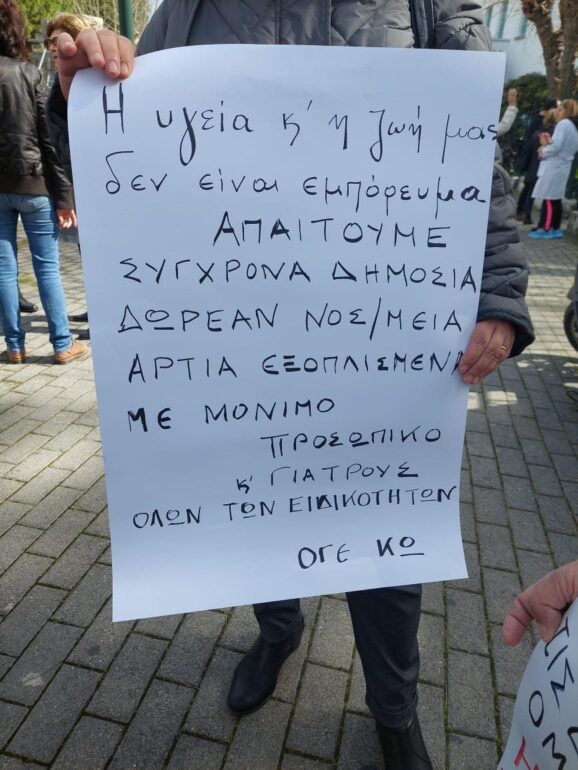 Η υγεία κ' η ζωή μας
δεν είναι εμπόρευμα
ΑΠΑΙΤΟΥΜΕ
ΣΥΓΧΡΟΝΑ ΔΗΜΟΣΙΑ
ΔΩΡΕΑΝ ΝΟΣ/ΜΕΙΑ
ΑΡΤΙΑ ΕΞΟΠΛΙΣΜΕΝΑ
ΜΕ ΜΟΝΙΜΟ
ΠΡΟΣΩΠΙΚΟ
κ' ΓΙΑΤΡΟΥΣ
ΟΛΩΝ ΤΩΝ ΕΙΔΙΚΟΤΗΤΩΝ
ΟΓΕ ΚΩ